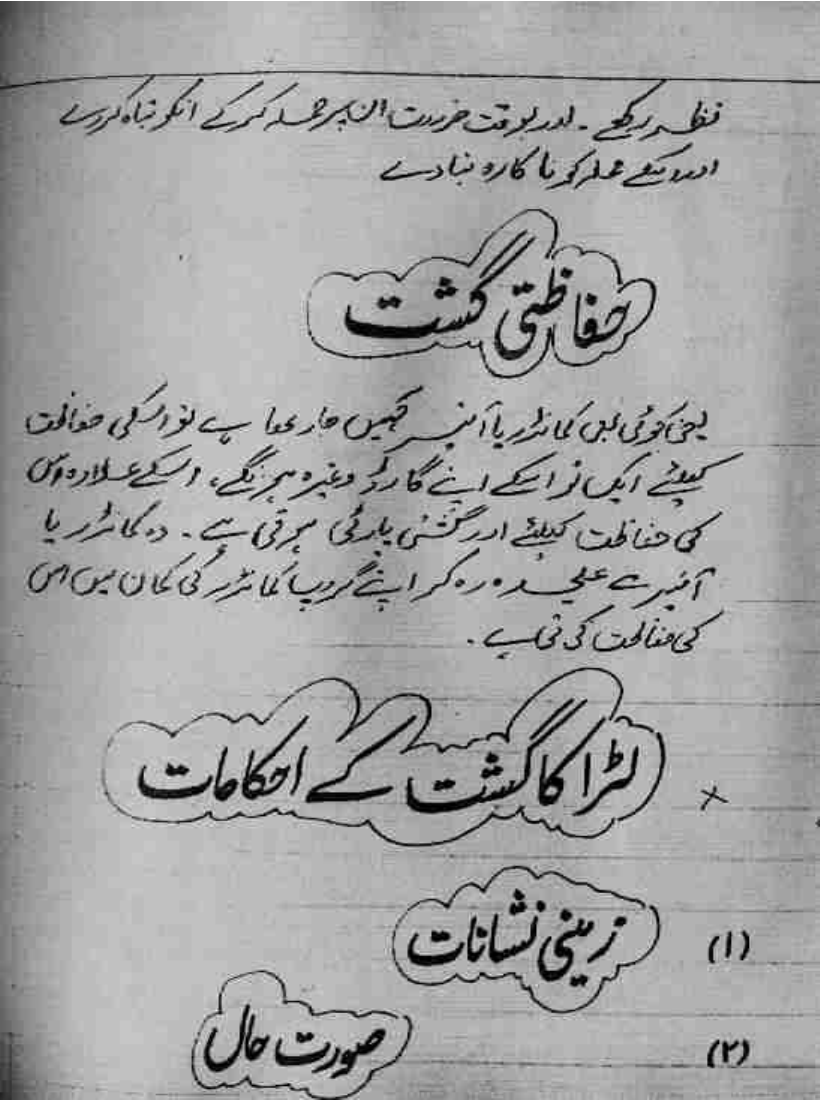 نظر رکھے ۔ اور بوقت ضرورت ان پر حملہ کرکے انکو تباہ کردے
اور انکے عملہ کو ناکارہ بنا دے
حفاظتی گشت
یعنی کوئی بھی کمانڈر یا آفیسر کہیں جا رہا ہے تو اسکی حفاظت
کیلئے ایک تو اسکے اپنے گارڈ وغیرہ ہونگے، اسکے علاوہ اس
کی حفاظت کیلئے اور گشتی پارٹی ہوتی ہے ۔ وہ کمانڈر یا
آفیسر سے علیحدہ رہ کر اپنے گروپ کمانڈر کی کمان میں اس
کی حفاظت کرتی ہے ۔
× لڑاکا گشت کے احکامات
(۱) زمینی نشانات
(۲) صورت حال